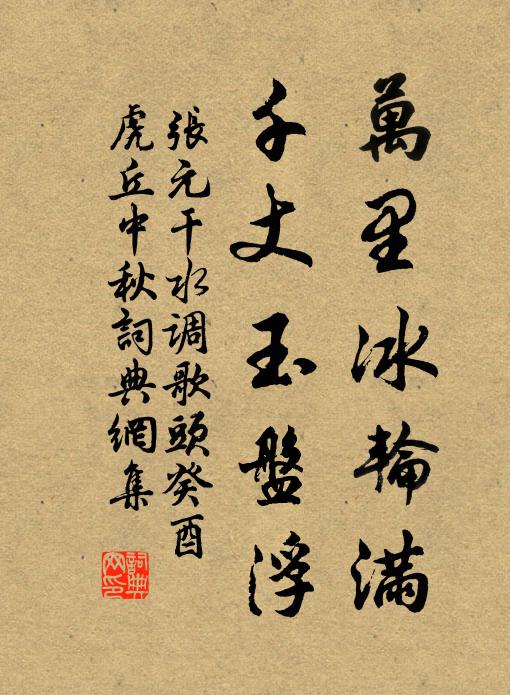 萬里冰輪滿
千丈玉盤浮
張元干水調歌頭癸酉
虎丘中秋詞典網集
詞典網印